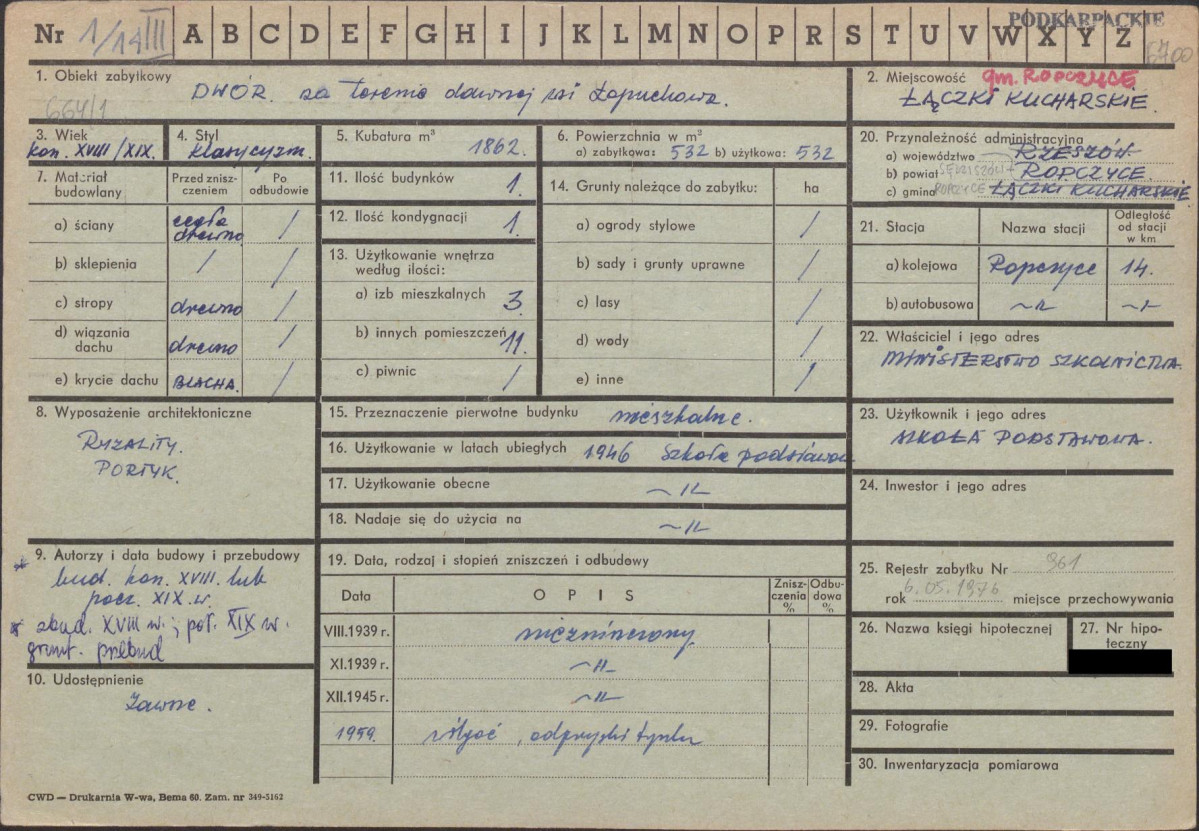 PODKARPACKIE
Nr 1/14 III A B C D E F G H I J K L M N O P R S T U V W X Y Z
6700
1. Obiekt zabytkowy
DWÓR. na terenie dawnej wsi Łopuchowa.
664/1
2. Miejscowość gm. ROPCZYCE
ŁĄCZKI KUCHARSKIE.
3. Wiek
kon. XVIII/XIX.
4. Styl
klasycyzm.
5. Kubatura m³
1862.
6. Powierzchnia w m³
a) zabytkowa: 532 b) użytkowa: 532
7. Materiał budowlany
Przed zniszczeniem
Po odbudowie
a) ściany cegła drewno /
b) sklepienia / /
c) stropy drewno /
d) wiązania dachu drewno /
e) krycie dachu BLACHA. /
8. Wyposażenie architektoniczne
RYZALITY.
PORTYK.
9. Autorzy i data budowy i przebudowy
bud. kon. XVIII. lub
pocz. XIX.w.
zbud. XVIII w.; poł. XIX w.
grunt. przebud
10. Udostępnienie
Zawsze.
11. Ilość budynków 1.
12. Ilość kondygnacji 1.
13. Użytkowanie wnętrza
według ilości:
a) izb mieszkalnych 3
b) innych pomieszczeń 11.
c) piwnic /
14. Grunty należące do zabytku: ha
a) ogrody stylowe /
b) sady i grunty uprawne /
c) lasy /
d) wody /
e) inne /
15. Przeznaczenie pierwotne budynku mieszkalne.
16. Użytkowanie w latach ubiegłych 1946 Szkoła podstawowa
17. Użytkowanie obecne ~ıı~
18. Nadaje się do użycia na ~ıı~
19. Data, rodzaj i stopień zniszczeń i odbudowy
Data OPIS Zniszczenia % Odbudowa %
VIII.1939 r. niezniszczony
XI.1939 r. ~ıı~
XII.1945 r. ~ıı~
1959. wilgoć, odpryski tynku
20. Przynależność administracyjna
a) województwo RZESZÓW
b) powiat ROPCZYCE.
c) gmina ROPCZYCE ŁĄCZKI KUCHARSKIE
21. Stacja Nazwa stacji Odległość od stacji w km
a) kolejowa Ropczyce 14.
b) autobusowa ~ıı~ ~ıı~
22. Właściciel i jego adres
MINISTERSTWO SZKOLNICTWA.
23. Użytkownik i jego adres
SZKOŁA PODSTAWOWA.
24. Inwestor i jego adres
25. Rejestr zabytku Nr 961
rok 6.05.1976 miejsce przechowywania
26. Nazwa księgi hipotecznej
27. Nr hipoteczny
28. Akta
29. Fotografie
30. Inwentaryzacja pomiarowa
CWD — Drukarnia W-wa, Bema 60. Zam. nr 349-5162